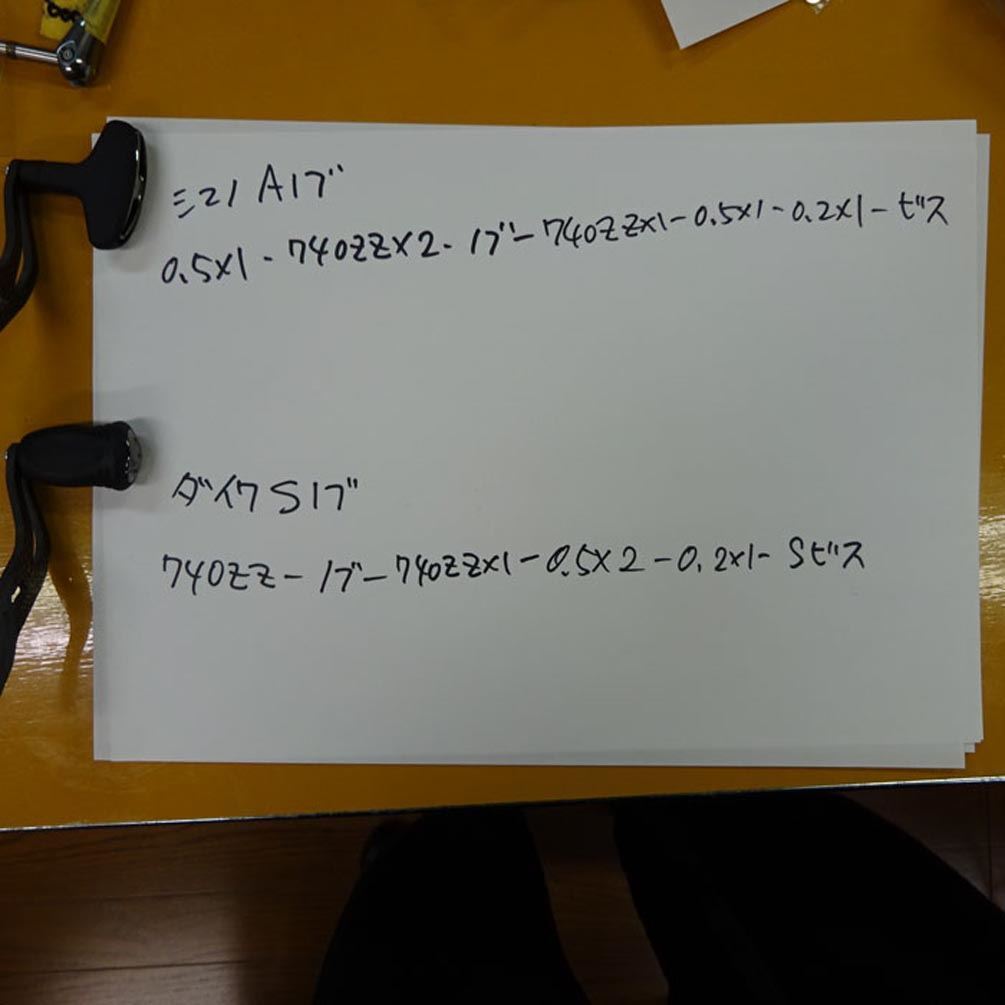 シマノ Aノブ
0.5×1-740ZZ×2-ノブ-740ZZ×1-0.5×1-0.2×1-ビス
ダイワ Sノブ
740ZZ-ノブ-740ZZ×1-0.5×2-0.2×1-Sビス